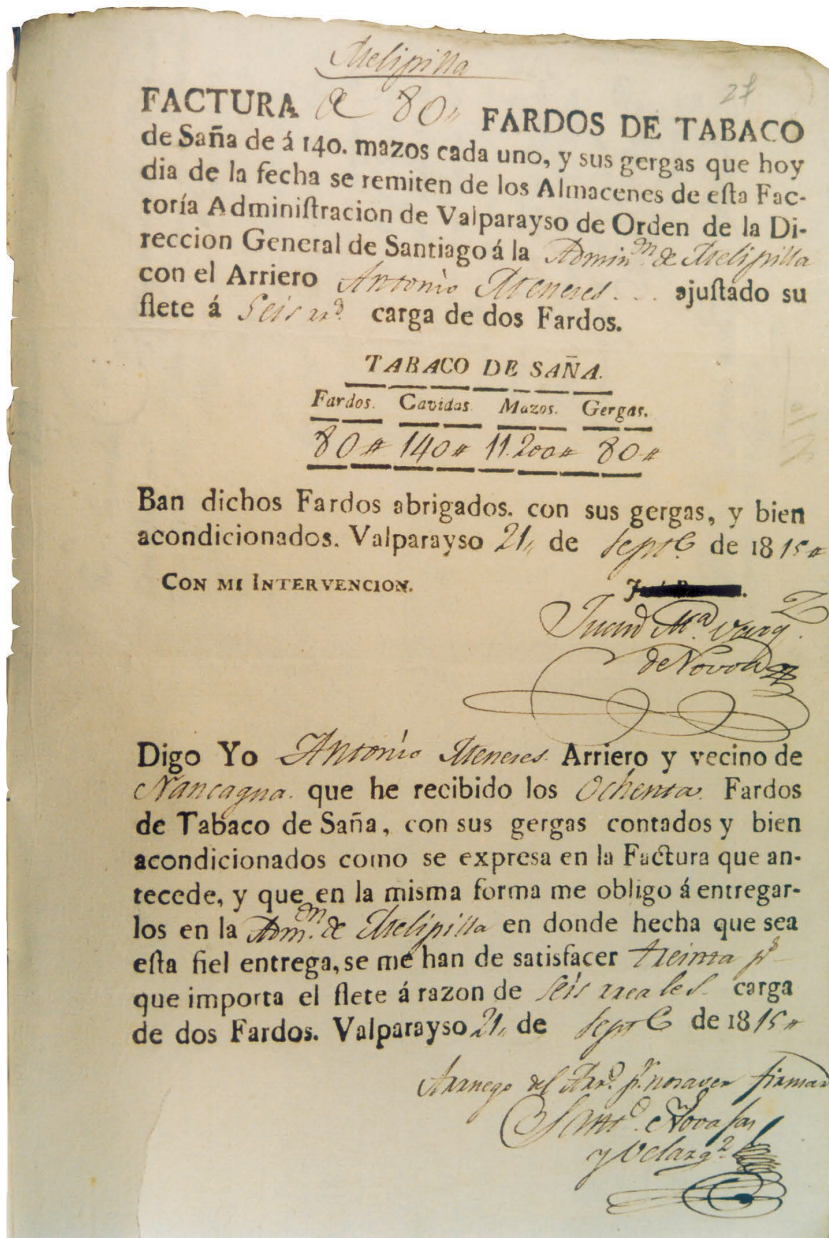 Melipilla
27
FACTURA de 80 FARDOS DE TABACO
de Saña de á 140. mazos cada uno, y sus gergas que hoy
dia de la fecha se remiten de los Almacenes de eſta Fac-
toría Adminiſtracion de Valparayso de Orden de la Di-
reccion General de Santiago á la Adminⁿ. de Melipilla
con el Arriero Antonio Meneses... ajuſtado su
flete á Seis rrˢ. carga de dos Fardos.
TABACO DE SAÑA.
Fardos. Cavidas Mazos. Gergas.
80 140 11.200 80
Ban dichos Fardos abrigados. con sus gergas, y bien
acondicionados. Valparayso 21,, de Septᵉ de 1815
CON MI INTERVENCION.
Juan Mᵃ. Varg.
de Novoa
Digo Yo Antonio Meneses Arriero y vecino de
Nancagua. que he recibido los Ochenta Fardos
de Tabaco de Saña, con sus gergas contados y bien
acondicionados como se expresa en la Factura que an-
tecede, y que en la misma forma me obligo á entregar-
los en la Admⁿ. de Melipilla en donde hecha que sea
eſta fiel entrega, se me han de satisfacer treinta pˢ
que importa el flete á razon de seis rreales carga
de dos Fardos. Valparayso 21,, de Septᵉ de 1815
Arruego del Arrᵒ. pʳ. no saver firmar
Santᵒ.
y